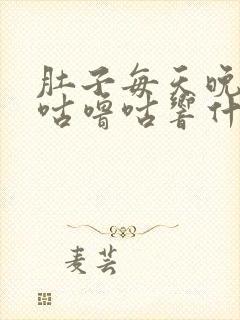 肚子每天晚
咕噜咕响什
麦芸